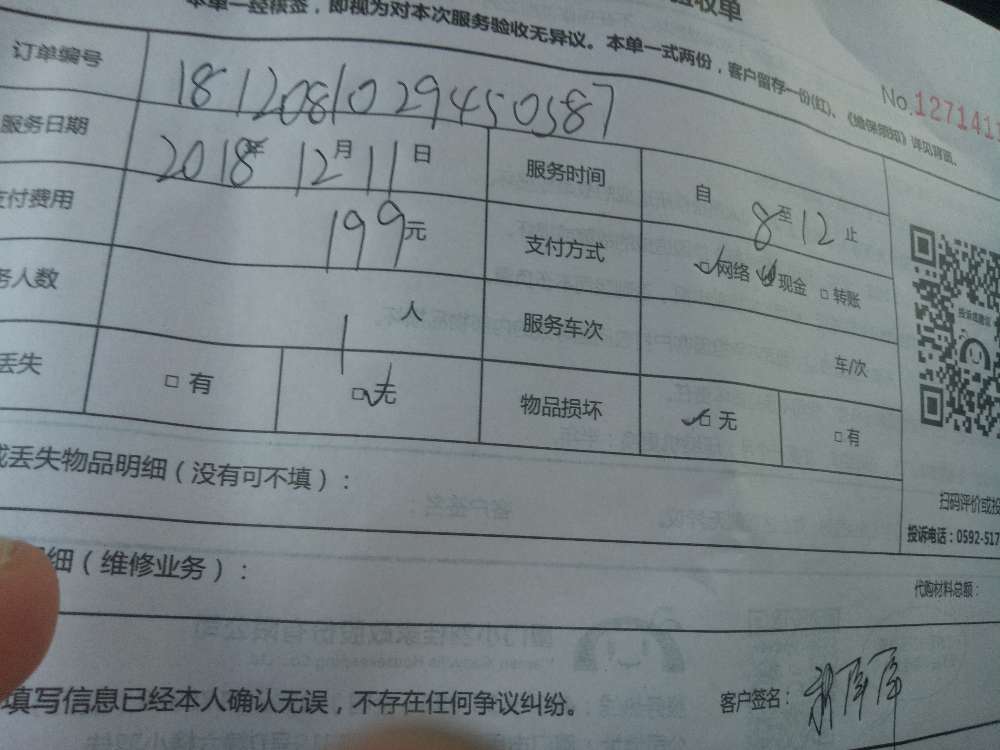 验收单
本单一经核签，即视为对本次服务验收无异议。本单一式两份，客户留存一份(红)、《维保须知》详见背面。
No.127141
订单编号 1812081029450587
服务日期 2018年 12月 11日 服务时间 自 8 至 12 止
支付费用 199元 支付方式 网络 现金 □ 转账
务人数 1 人 服务车次 车/次
丢失 □ 有 □ 无 物品损坏 □ 无 □ 有
丢失物品明细（没有可不填）：
细（维修业务）：
代购材料总额：
扫码评价或投
投诉电话：0592-517
填写信息已经本人确认无误，不存在任何争议纠纷。
客户签名：